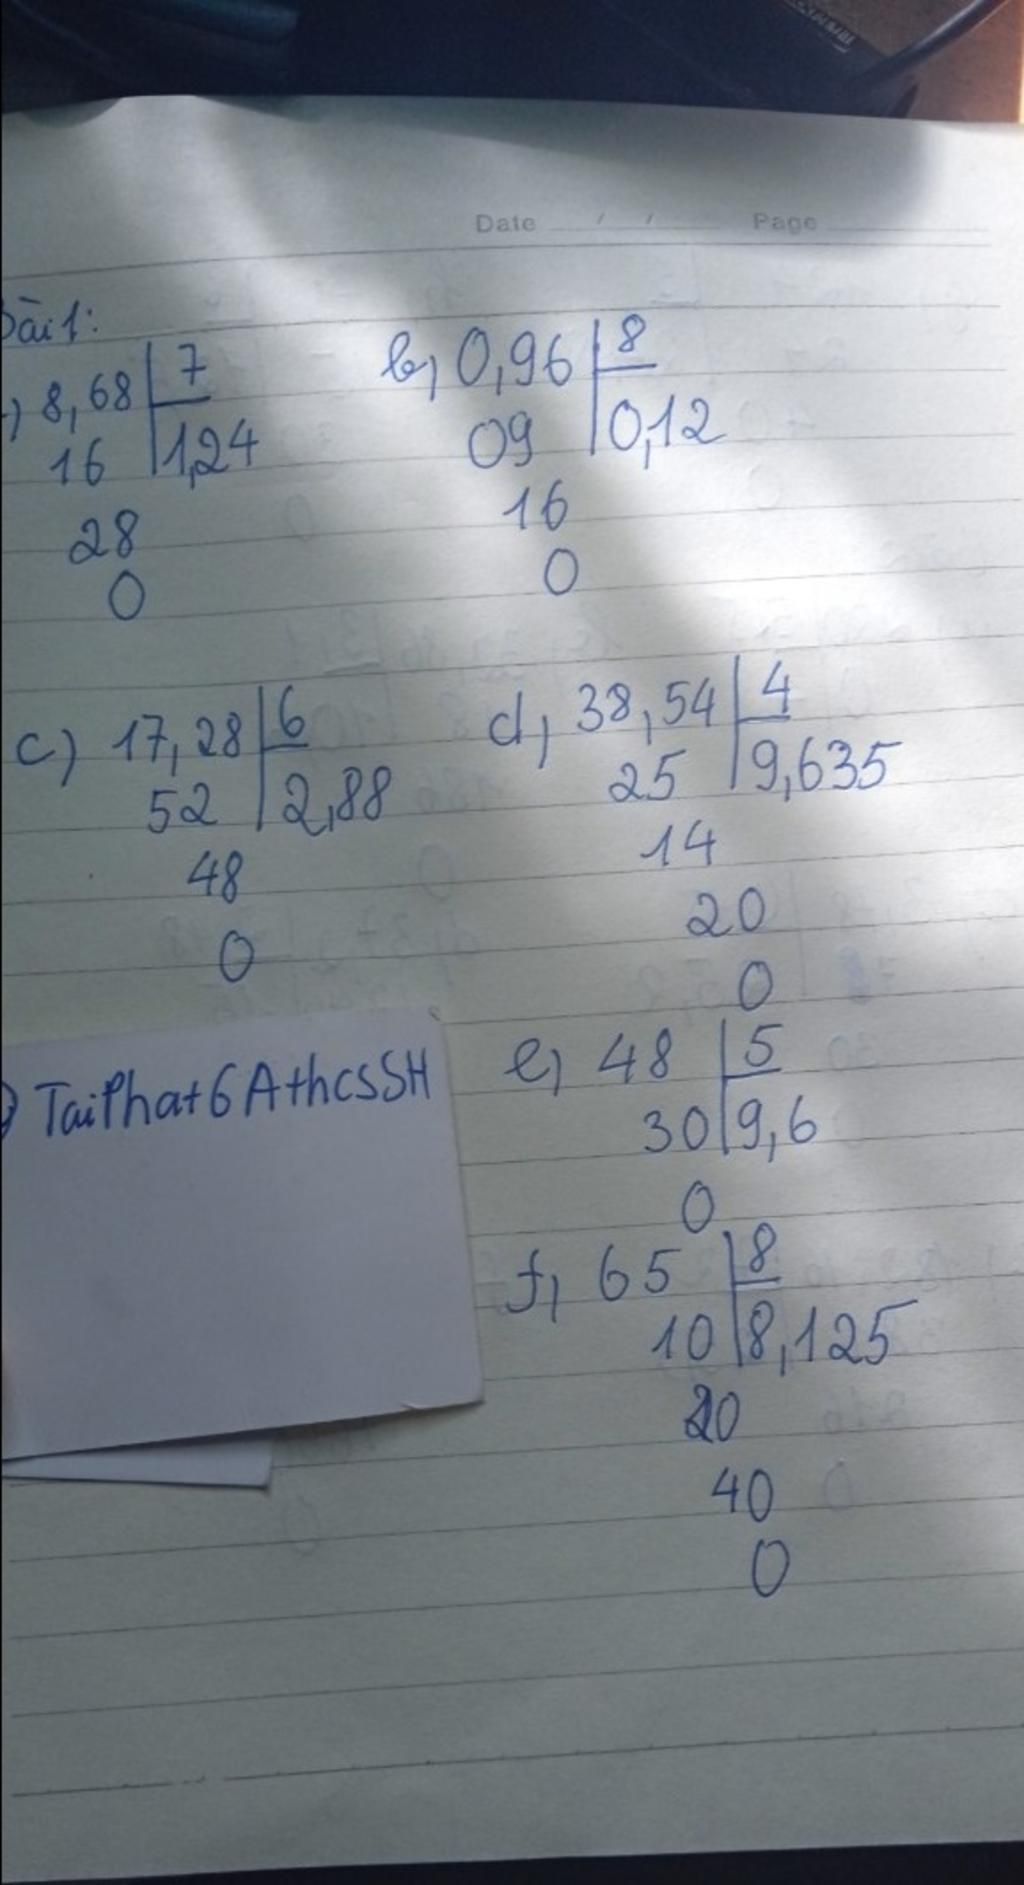 Date / / Page
Bài 1:
) 8,68 7
16 1,24
28
0
b, 0,96 8
09 0,12
16
0
c) 17,28 6
52 2,88
48
0
d, 38,54 4
25 9,635
14
20
0
TaiPhat6AthcsSH
e, 48 5
30 9,6
0
f, 65 8
10 8,125
20
40
0